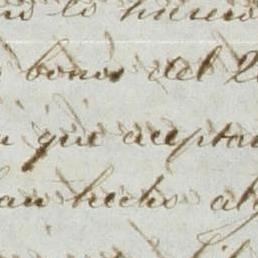 lo
bonos del
que acepta
han hecho al